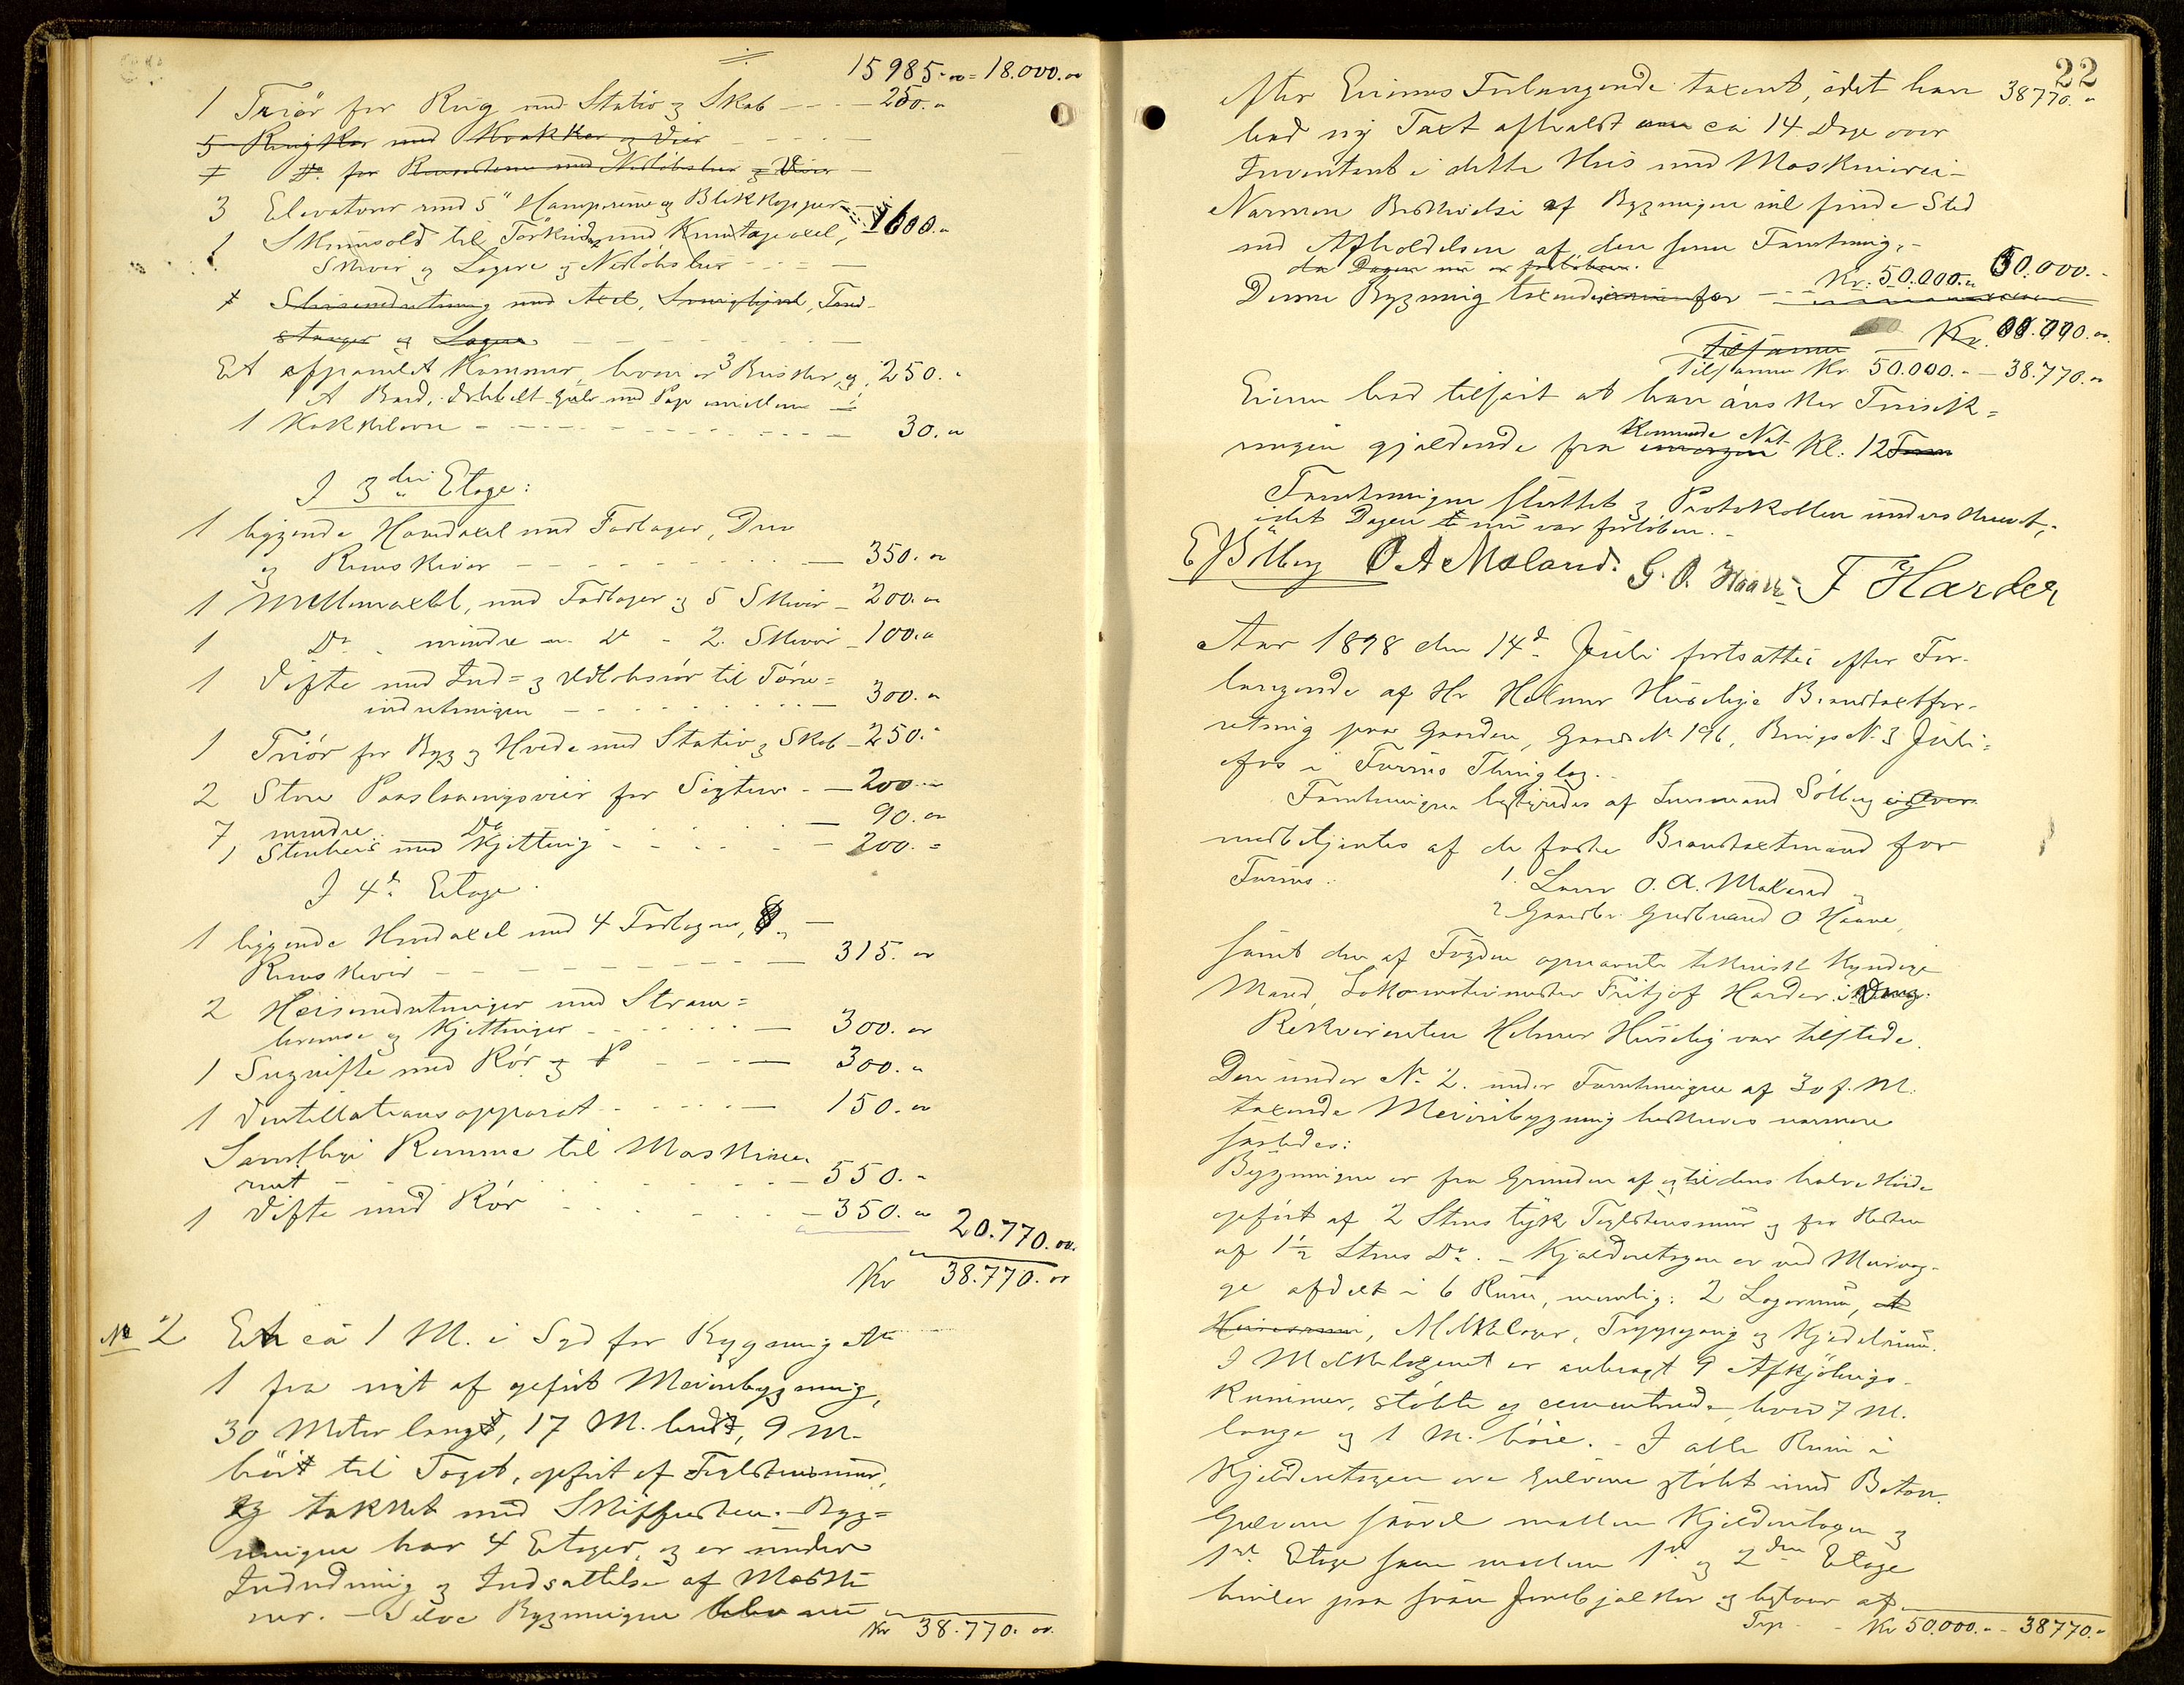 15985.00 = 18.000.00
1 Triör for Rug med Stativ og Skab - - - 250.00
5 Rugkar med Krakker og Vier
1 Do. for med Nedløbsrør og Vier
3 Elevatorer med 5" Hampreme og Blikkopper
1 Skumsold til med , 1600.00
Skiver og Lagere og Nedløbsrør - - -
1 med Axel, , Tand-
stænger og Lagere - - -
Et afpanelet Kammer, hvori er 3 Brisker, og 250.
et Bord, dobbelt Gulv med Pap imellem
1 Kakkelovn - - - 30.00
I 3die Etage:
1 liggende Hovedaxel med Fodlager, Drev
og Remskiver - - - 350.00
1 Mellemaxel, med Fodlager og 5 Skiver - 200.00
1 Do. mindre Do - 2 Skiver - 100.00
1 Vifte med Ind= og Udløbsrør til Tørre=
indretningen - - - 300.00
1 Triör for Byg og Hvede med Stativ og Skab - 250.
2 Store for Sigter - 200.00
7 mindre Do - 90.00
1 Stenheis med Kjetting - - - 200.
I 4de Etage.
1 liggende Hovedaxel med 4 Fodlagere,
Remskiver - - - 315.00
2 Heiseindretninger med
bremse og Kjettinger - - - 300.00
1 Sugvifte med Rör - - - 300.00
1 Ventillationsapparat - - - 150.00
Samtlige Remme til Maskine
riet - - - 550.
1 Vifte med Rör - - - 350.00 20.770.00
Kr 38.770.00
No 2 En ca 1 M. i Syd for Bygning No
1 fra nyt af opført Meieribygning,
30 Meter lang, 17 M. bred, 9 M.
høi til Taget, opført af Teglstensmur,
og takket med Skifersten. - Byg=
ningen har 4 Etager, og er under
Indredning og Indsættelse af Maski
ner. - Selve Bygningen blev nu
Kr 38.770.00
22
efter Eierens Forlangende taxeret, idet han 38770.00
bad ny Taxt afholdt om ca 14 Dage over
Inventaret i dette Hus med Maskineri -
Nærmere Beskrivelse af Bygningen vil finde Sted
ved Afholdelsen af den senere Forretning, -
da Dagen nu er forløben.
Denne Bygning taxeredes for - - Kr: 50.000.00 50.000.
Tilsammen Kr.
Tilsammen Kr. 50.000. - 38.770.00
Eieren bad tilført at han ønsker Forsik=
ringen gjældende fra kommende Nat Kl. 12
Forretningen sluttet og Protokollen underskrevet,
idet Dagen nu var forløben. -
E Sölberg O A Moland. G. O. Haave. F Harder
Aar 1898 den 14de Juli fortsattes efter For-
langende af Hr Helmer Huselig Brandtaxtfor-
retning paa Gaarden, Gaards No 196, Brugs No 3 Juli=
fos i Furnes Thinglag. -
Forretningen bestyredes af Lensmand Sölberg
medbetjentes af de faste Brandtaxtmænd for
Furnes:
1. Lærer O. A. Moland og
2 Gaardbr. Gudbrand O Haave,
samt den af Fogden opnævnte teknisk kyndige
Mand, Lokomotivmester Fritjof Harder.
Rekvirenten Helmer Huselig var tilstede.
Den under No 2. under Forretningen af 30 f. M.
taxerede Meieribygning beskrives nærmere
saaledes:
Bygningen er fra Grunden af og til dens halve Høide
opført af 2 Stens tyk Teglstensmur og for Resten
af 1½ Stens Do. - Kjælderetagen er ved Murvæg-
ge afdelt i 6 Rum, nemlig: 2 Lagerrum, et
, Melkelager, Trappegang og Kjedelrum.
I Melkelageret er anbragt 9 Afkjølings-
kummer, støbte og cementerede, hver 7 M.
lange og 1 M. høie. - I alle Rum i
Kjælderetagen ere Gulvene støbt med Beton.
Gulvene saavel mellem Kjælderetagen og
1ste Etage som mellem 1ste og 2den Etage
hviler paa svære Jernbjælker og bestaar af
Trsp. - Kr 50.000. - 38770.